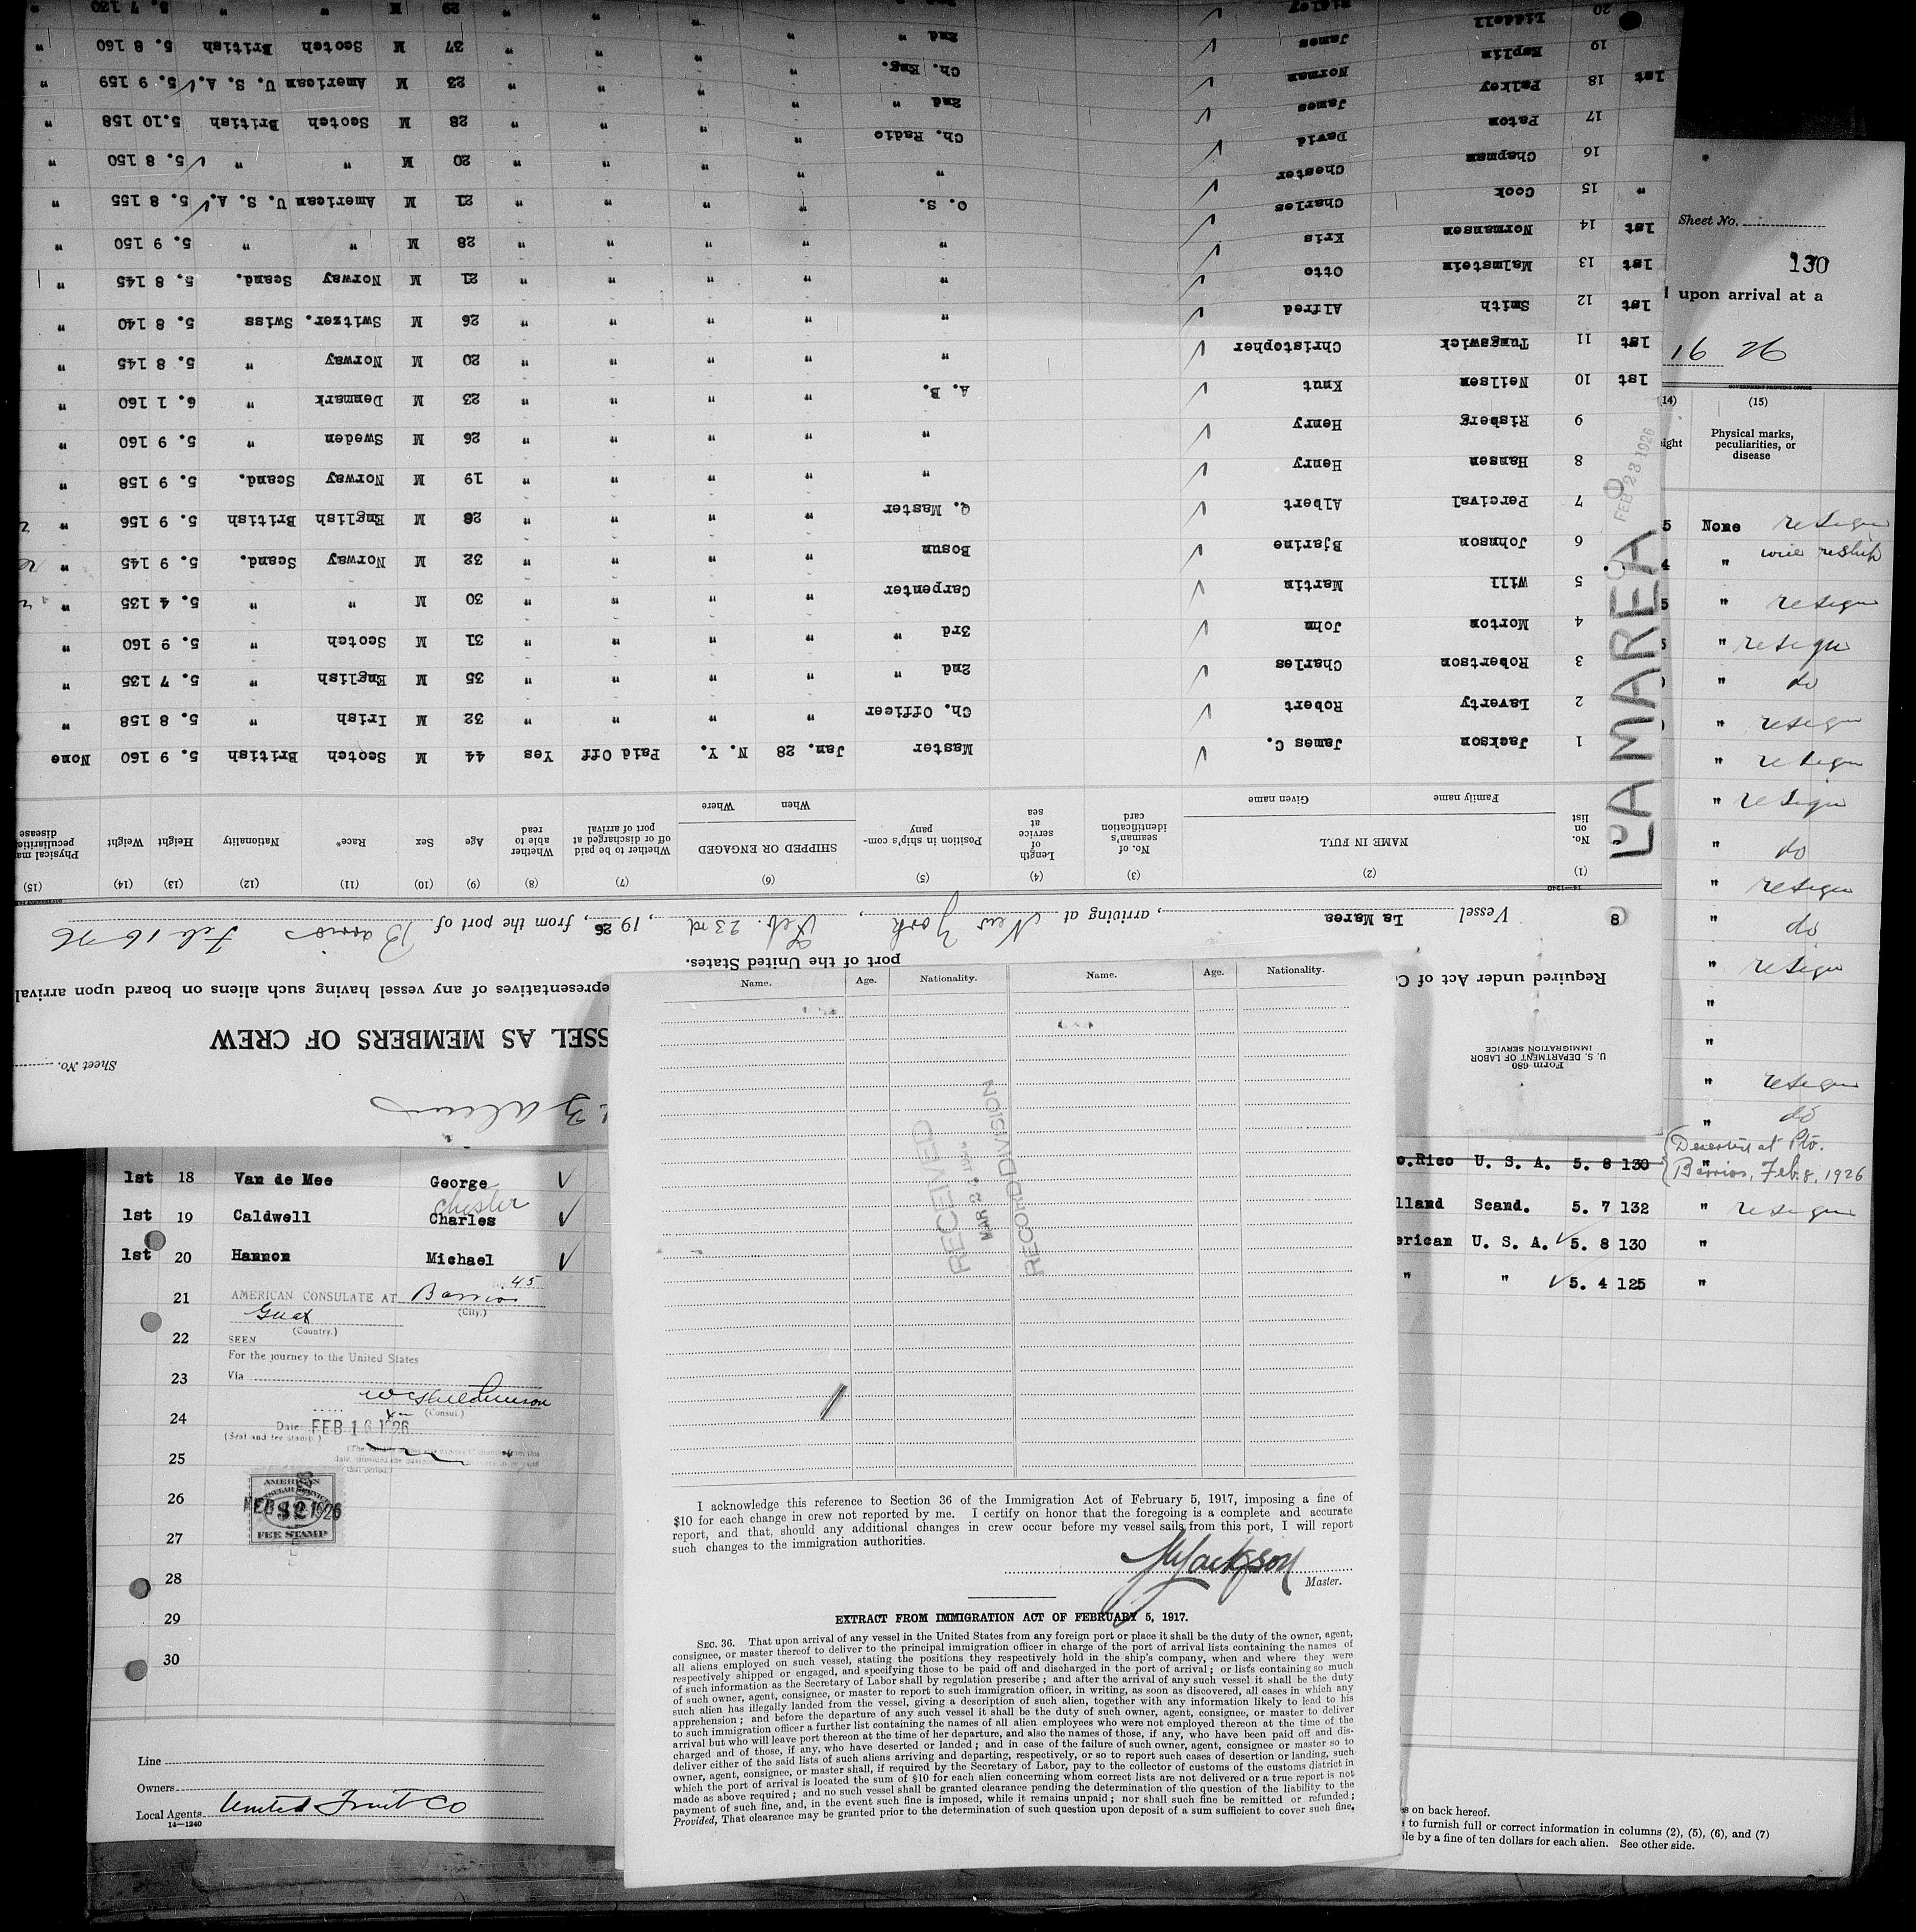 8
Vessel La Marea, arriving at New York, Feb. 23rd, 1926, from the port of Barrios Feb 16-26
Form 680
U. S. DEPARTMENT OF LABOR
IMMIGRATION SERVICE
Sheet No.
SSEL AS MEMBERS OF CREW
Required under Act of C
representatives of any vessel having such aliens on board upon arrival
port of the United States.
LA MAREA
FEB 23 1926
(1) (2) (3) (4) (5) (6) (7) (8) (9) (10) (11) (12) (13) (14) (15)
No. on list NAME IN FULL No. of seaman's identification card Length of service at sea Position in ship's company SHIPPED OR ENGAGED Whether to be paid off or discharged at port of arrival Whether able to read Age Sex Race* Nationality Height Weight Physical ma peculiarities disease
Family name Given name When Where
1 Jackson James C. Master Jan. 28 N. Y. Paid Off Yes 44 M Scotch British 5. 9 160 None
2 Laverty Robert Ch. Officer " " " " 32 M Irish " 5. 8 158 "
3 Robertson Charles 2nd " " " " " 35 M English " 5. 7 135 "
4 Morton John 3rd " " " " " 31 M Scotch " 5. 9 160 "
5 Will Martin Carpenter " " " " 30 M " " 5. 4 135 "
6 Johnson Bjarine Bosun " " " " 32 M Norway Scand. 5. 9 145 "
7 Percival Albert Q. Master " " " " 28 M English British 5. 9 156 "
8 Hansen Henry " " " " " 19 M Norway Scand. 5. 9 158 "
9 Risberg Henry " " " " " 26 M Sweden " 5. 9 160 "
1st 10 Neilsen Knut A. B. " " " " 23 M Denmark " 6. 1 160 "
1st 11 Tungswick Christopher " " " " " 20 M Norway " 5. 8 145 "
1st 12 Smith Alfred " " " " " 26 M Switzer. Swiss 5. 8 140 "
1st 13 Malmstein Otto " " " " " 21 M Norway Scand. 5. 8 145 "
1st 14 Normansen Kris " " " " " 28 M " " 5. 9 150 "
" 15 Cook Charles O. S. " " " " 21 M American U. S. A. 5. 8 155 "
16 Chapman Chester " " " " " 20 M " " 5. 8 150 "
17 Paton David Ch. Radio " " " " 28 M Scotch British 5.10 158 "
1st 18 Pelkey James 2nd " " " " " 23 M American U. S. A. 5. 9 159 "
19 Esplin Norman Ch. Eng. " " " " 37 M Scotch British 5. 8 160 "
20 Liddell James 2nd " " " " " 29 M " " 5. 7 130 "
Sheet No.
130
upon arrival at a
16 26
GOVERNMENT PRINTING OFFICE
14) (15)
ight Physical marks, peculiarities, or disease
5 None resign
" will reship
" resign
" resign
" do
" resign
" resign
" resign
" do
" resign
" do
" resign
"
"
" resign
" do
o.Rico U. S. A. 5. 8 130 " Deserted at Pto. Barrios, Feb. 8, 1926
lland Scand. 5. 7 132 " resign
erican U. S. A. 5. 8 130 "
" " 5. 4 125 "
1st 18 Van de Mee George
1st 19 Caldwell Chester Charles
1st 20 Hannon Michael
21
22
23
24
25
26
27
28
29
30
45
AMERICAN CONSULATE AT Barrios
(City.)
Guat
(Country.)
SEEN
For the journey to the United States
Via
(Consul.)
Date: FEB 16 1926
(Seal and fee stamp.)
AMERICAN
CONSULAR SERVICE
$2
FEE STAMP
Line
Owners
Local Agents United Fruit Co
14—1240
Name. Age. Nationality. Name. Age. Nationality.
RECEIVED
MAR 2 1926
RECORD DIVISION
I acknowledge this reference to Section 36 of the Immigration Act of February 5, 1917, imposing a fine of
$10 for each change in crew not reported by me. I certify on honor that the foregoing is a complete and accurate
report, and that, should any additional changes in crew occur before my vessel sails from this port, I will report
such changes to the immigration authorities.
Jackson
Master.
EXTRACT FROM IMMIGRATION ACT OF FEBRUARY 5, 1917.
SEC. 36. That upon arrival of any vessel in the United States from any foreign port or place it shall be the duty of the owner, agent,
consignee, or master thereof to deliver to the principal immigration officer in charge of the port of arrival lists containing the names of
all aliens employed on such vessel, stating the positions they respectively hold in the ship's company, when and where they were
respectively shipped or engaged, and specifying those to be paid off and discharged in the port of arrival; or lists containing so much
of such information as the Secretary of Labor shall by regulation prescribe; and after the arrival of any such vessel it shall be the duty
of such owner, agent, consignee, or master to report to such immigration officer, in writing, as soon as discovered, all cases in which any
such alien has illegally landed from the vessel, giving a description of such alien, together with any information likely to lead to his
apprehension; and before the departure of any such vessel it shall be the duty of such owner, agent, consignee, or master to deliver
to such immigration officer a further list containing the names of all alien employees who were not employed thereon at the time of the
arrival but who will leave port thereon at the time of her departure, and also the names of those, if any, who have been paid off and dis-
charged and of those, if any, who have deserted or landed; and in case of the failure of such owner, agent, consignee or master so to
deliver either of the said lists of such aliens arriving and departing, respectively, or so to report such cases of desertion or landing, such
owner, agent, consignee, or master shall, if required by the Secretary of Labor, pay to the collector of customs of the customs district in
which the port of arrival is located the sum of $10 for each alien concerning whom correct lists are not delivered or a true report is not
made as above required; and no such vessel shall be granted clearance pending the determination of the question of the liability to the
payment of such fine, and, in the event such fine is imposed, while it remains unpaid; nor shall such fine be remitted or refunded;
Provided, That clearance may be granted prior to the determination of such question upon deposit of a sum sufficient to cover such fine.
s on back hereof.
to furnish full or correct information in columns (2), (5), (6), and (7)
le by a fine of ten dollars for each alien. See other side.